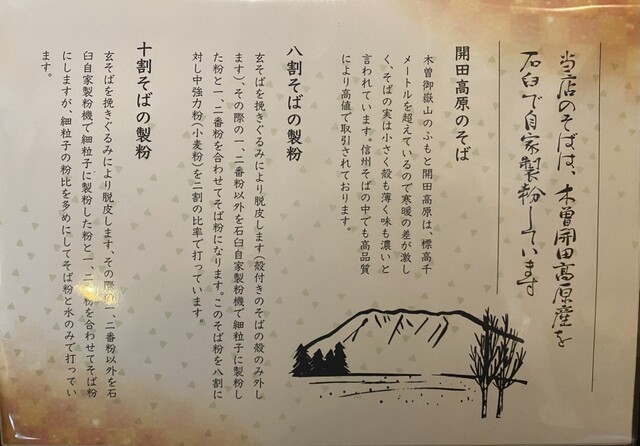 当店のそばは、木曽開田高原産を
石臼で自家製粉しています
開田高原のそば
木曽御嶽山のふもと開田高原は、標高千
メートルを超えているので寒暖の差が激し
く、そばの実は小さく殻も薄く味も濃いと
言われています。信州そばの中でも高品質
により高値で取引されております。
八割そばの製粉
玄そばを挽きぐるみにより脱皮します(殻付きのそばの殻のみ外し
ます)、その際の一、二番粉以外を石臼自家製粉機で細粒子に製粉し
た粉と一、二番粉を合わせてそば粉になります。このそば粉を八割に
対し中強力粉(小麦粉)を二割の比率で打っています。
十割そばの製粉
玄そばを挽きぐるみにより脱皮します、その際の一、二番粉以外を石
臼自家製粉機で細粒子に製粉した粉と一、二番粉を合わせてそば粉
にしますが、細粒子の粉比を多めにしてそば粉と水のみで打ってい
ます。